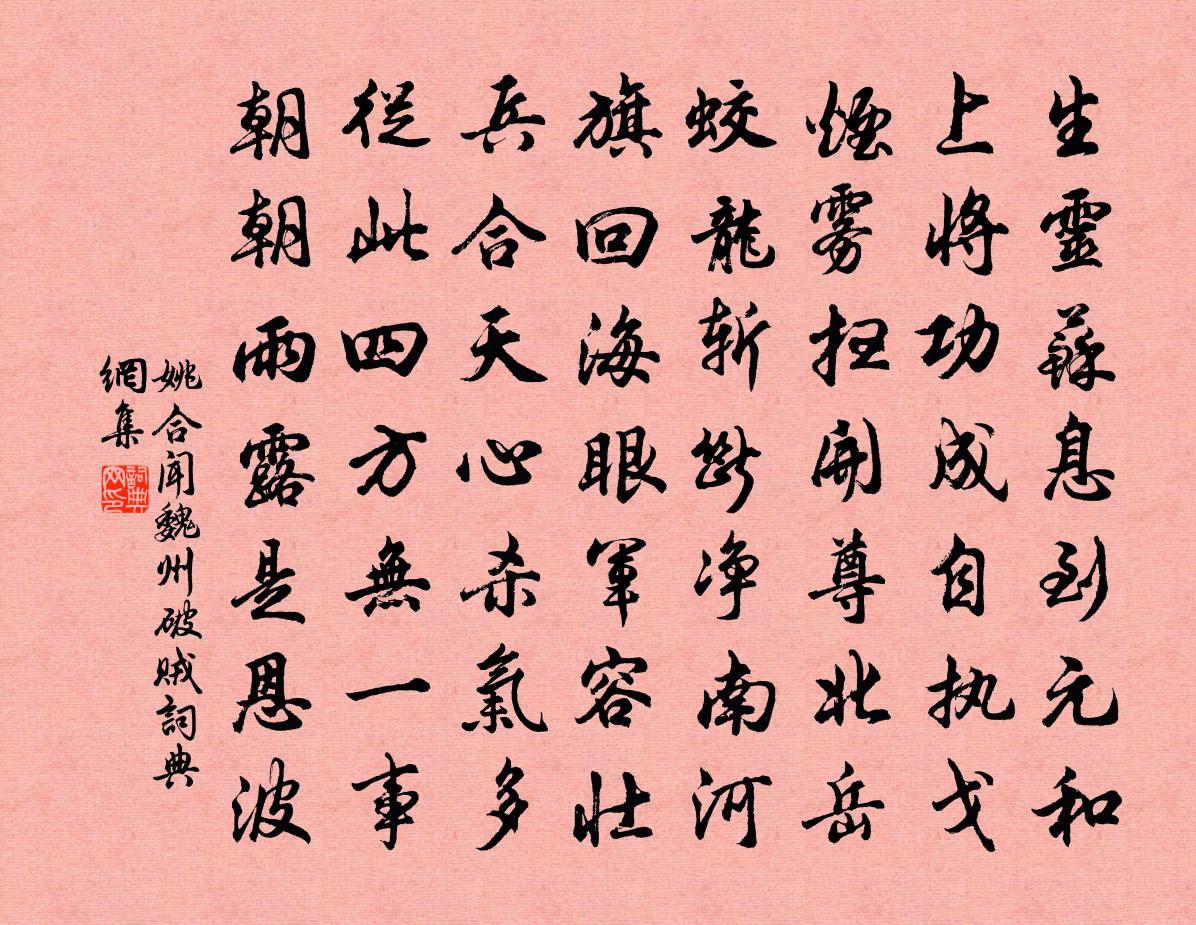 生靈蘇息到元和
上將功成自执戈
煙雾扫開尊北岳
蛟龍斩斷净南河
旗回海眼軍容壮
兵合天心杀氣多
從此四方無一事
朝朝雨露是恩波
姚合闻魏州破贼詞典
網集
詞典
网印